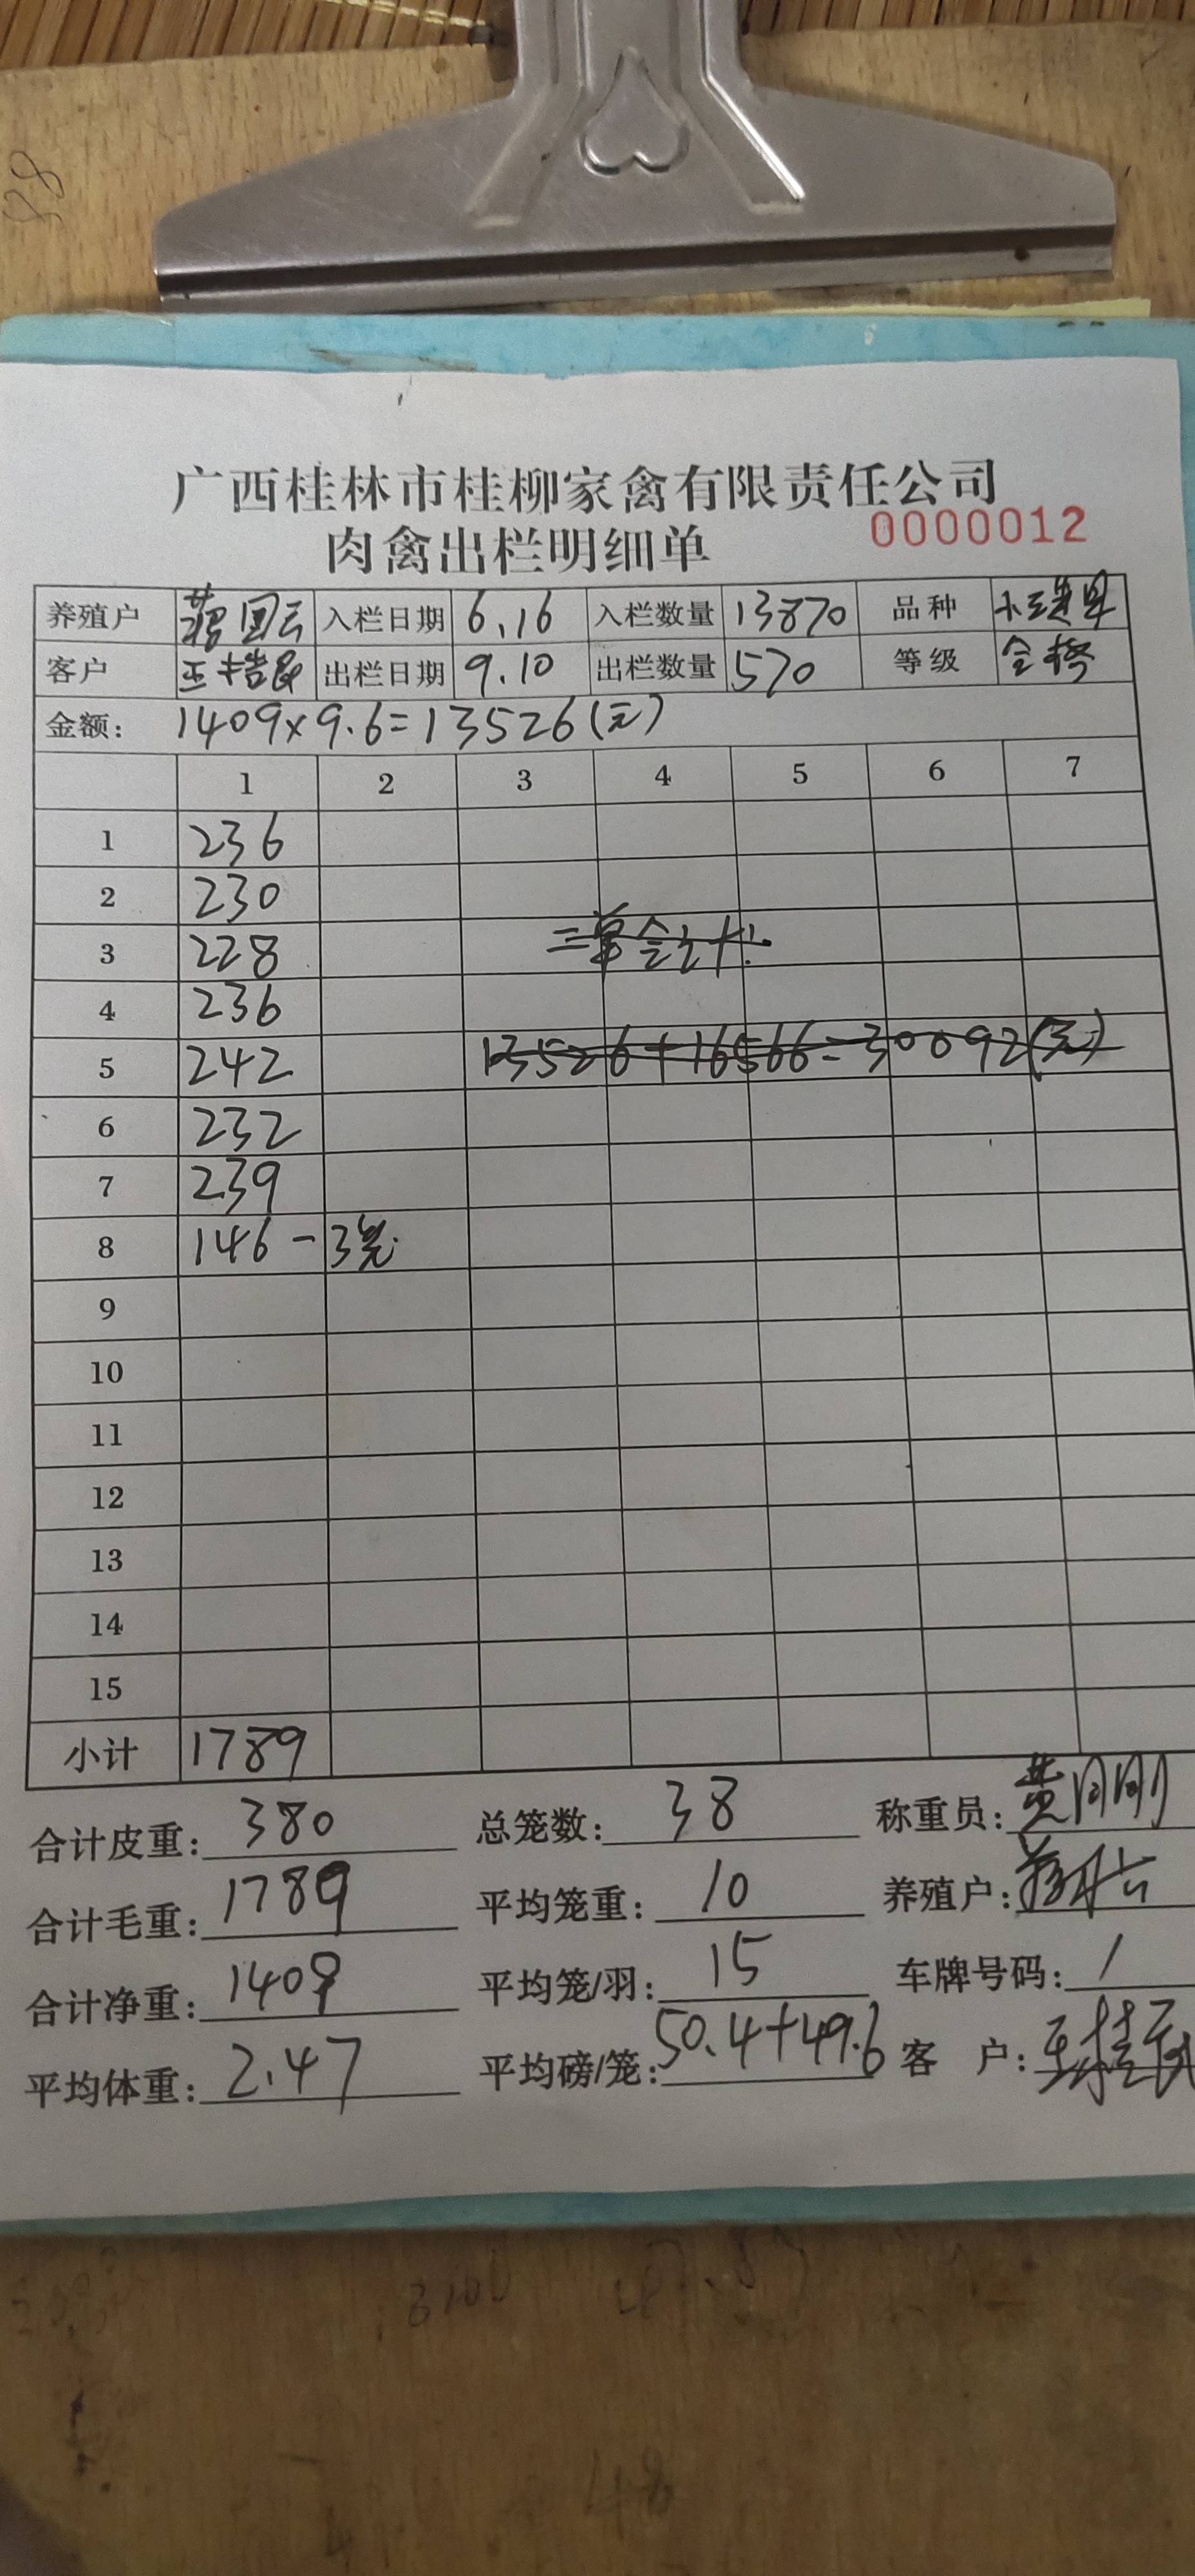 88
广西桂林市桂柳家禽有限责任公司
肉禽出栏明细单 0000012
养殖户 入栏日期 6.16 入栏数量 13870 品种
客户 出栏日期 9.10 出栏数量 570 等级
金额: 1409×9.6=13526(元)
1 2 3 4 5 6 7
1 236
2 230
3 228 二单合计:
4 236
5 242 13526+16566=30092(元)
6 232
7 239
8 146-3笼
9
10
11
12
13
14
15
小计 1789
合计皮重: 380 总笼数: 38 称重员: 黄刚
合计毛重: 1789 平均笼重: 10 养殖户:
合计净重: 1409 平均笼/羽: 15 车牌号码: /
平均体重: 2.47 平均磅/笼: 50.4+49.6 客 户: